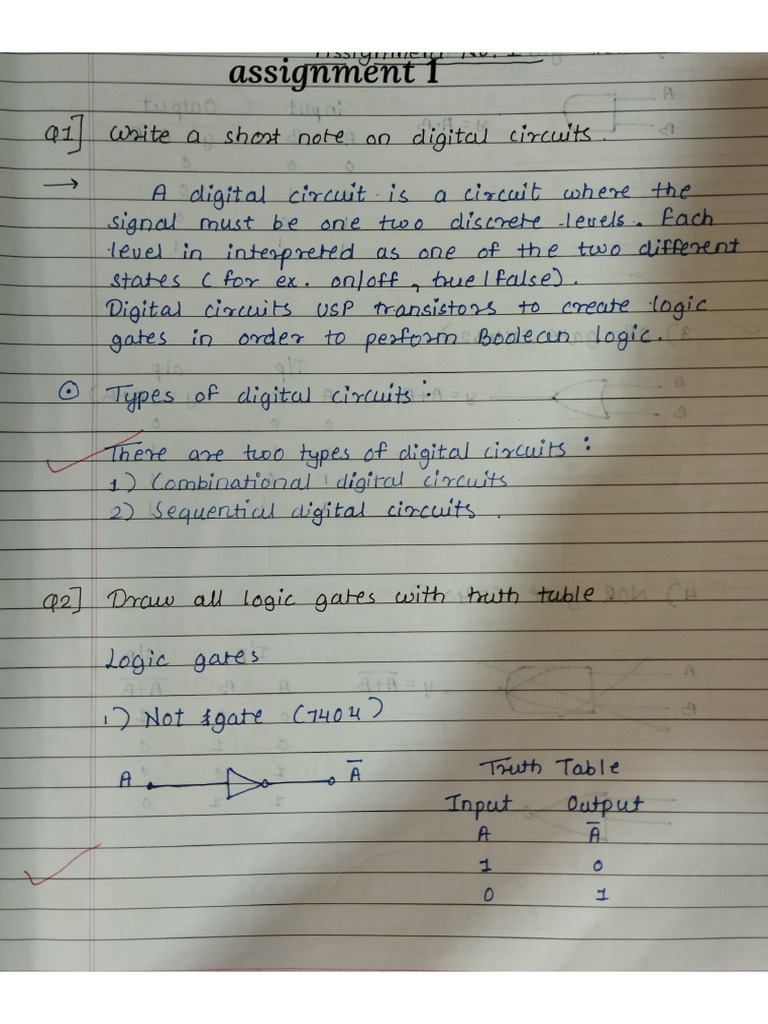 Assignment No. 1
assignment 1
Q1] Write a short note on digital circuits.
→ A digital circuit is a circuit where the
signal must be one two discrete levels. Each
level in interpreted as one of the two different
states ( for ex. on/off , true/false).
Digital circuits use transistors to create logic
gates in order to perform Boolean logic.
⊙ Types of digital circuits :
There are two types of digital circuits :
1) Combinational digital circuits
2) Sequential digital circuits .
Q2] Draw all logic gates with truth table .
Logic gates
1) Not gate (7404)
A A̅
Truth Table
Input Output
A A̅
1 0
0 1